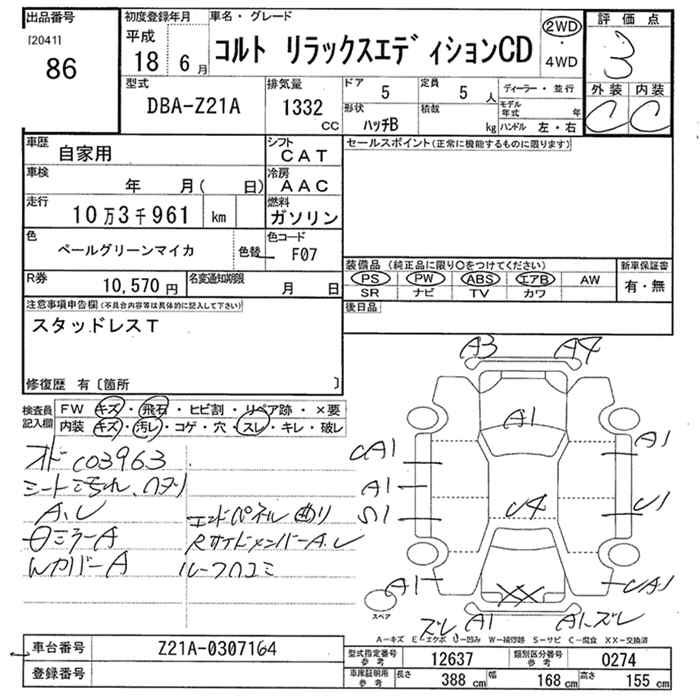 出品番号
[2041]
86
初度登録年月
平成
18 6月
車名・グレード
コルト リラックスエディションCD
2WD
・
4WD
評価点
3
外装 内装
C C
型式
DBA-Z21A
排気量
1332
CC
ドア 5
定員 5 人
形状 ハッチB
積載 kg
ディーラー・並行
モデル年式 年
ハンドル 左・右
車歴 自家用
シフト CAT
セールスポイント(正常に機能するものに限ります)
車検 年 月( 日)
冷房 AAC
走行 10万3千961 km
燃料 ガソリン
色 ペールグリーンマイカ
色替
色コード F07
R券 10,570円
名変通知期限 月 日
装備品 (純正品に限り○をつけてください)
PS PW ABS エアB AW
SR ナビ TV カワ
新車保証書
有・無
後日品
注意事項申告欄(不具合内容等は具体的に記入して下さい)
スタッドレスT
修復歴 有〔箇所 〕
検査員記入欄
FW キズ・飛石・ヒビ割・リペア跡・×要
内装 キズ・汚レ・コゲ・穴・スレ・キレ・破レ
シート汚れ
エンドパネル曲り
RサイドメンバーA.U
ルーフ
A3 A4
A1
A1
A1
A1
U4
S1
U1
A1
XX
UA1
ズレ A1
A1.ズレ
スペア
A−キズ E−エクボ U−凹み W−補修跡 S−サビ C−腐食 XX−交換済
車台番号 Z21A-0307164
登録番号
型式指定番号 参考 12637
類別区分番号 参考 0274
車庫証明用 参考
長さ 388 cm
幅 168 cm
高さ 155 cm